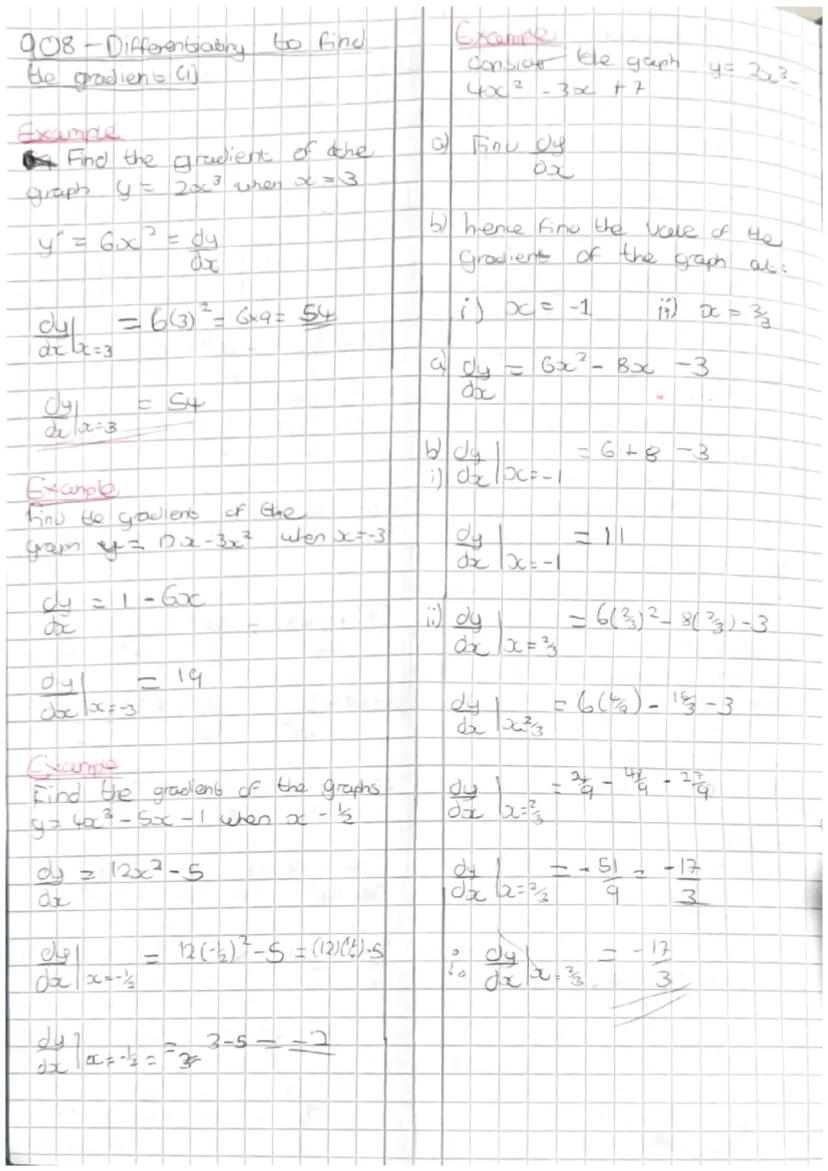 908 - Differentiating to find
the gradient (1)
Example
Find the gradient of the
graph y = 2x³ when x = 3
y'' = 6x² = dy/dx
dy/dx|x=3 = 6(3)² = 6x9 = 54
dy/dx|x=3 = 54
Example
Find the gradient of the
graph y = x - 3x² when x = -3
dy/dx = 1 - 6x
dy/dx|x=-3 = 19
Example
Find the gradient of the graphs
y = 4x³ - 5x - 1 when x - ½
dy/dx = 12x² - 5
dy/dx|x=-½ = 12(-½)² - 5 = (12)(¼) - 5
dy/dx|x=-½ = 3 - 5 = -2
Example
Consider the graph y = 2x³ -
4x² - 3x + 7
a) Find dy/dx
b) hence find the value of the
gradient of the graph at:
i) x = -1 ii) x = 2/3
a) dy/dx = 6x² - 8x - 3
b) i) dy/dx|x=-1 = 6 + 8 - 3
dy/dx|x=-1 = 11
ii) dy/dx|x=2/3 = 6(2/3)² - 8(2/3) - 3
dy/dx|x=2/3 = 6(4/9) - 16/3 - 3
dy/dx|x=2/3 = 24/9 - 48/9 - 27/9
dy/dx|x=2/3 = -51/9 = -17/3
∴ dy/dx|x=2/3 = -17/3